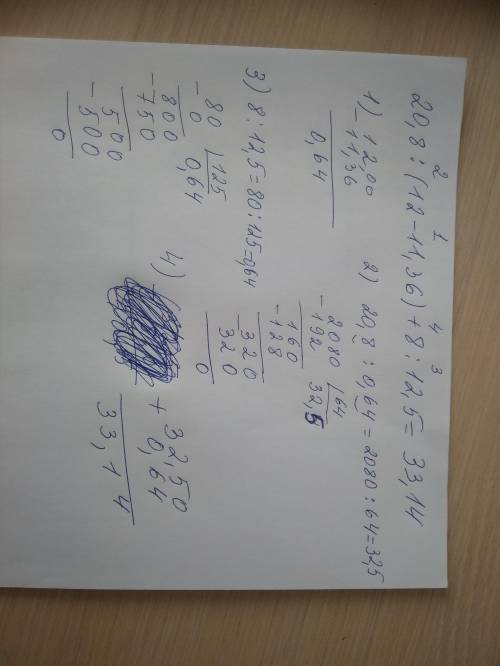 2 1 4 3
20,8 : (12-11,36) + 8 : 12,5 = 33,14
1) - 12,00
11,36
0,64
2) 20,8 : 0,64 = 2080 : 64 = 32,5
2080 | 64
- 192 32,5
160
- 128
320
- 320
0
3) 8 : 12,5 = 80 : 125 = 0,64
80 | 125
- 0 0,64
800
- 750
500
- 500
0
4) + 32,50
0,64
33,14